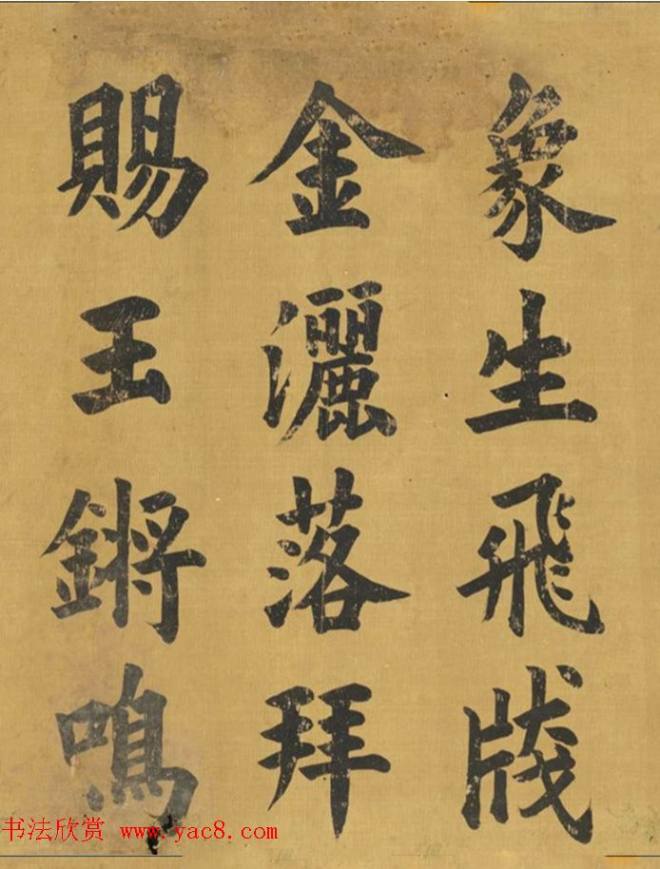 象生飛牋
金灑落拜
賜王鏘鳴
书法欣赏 www.yac8.com